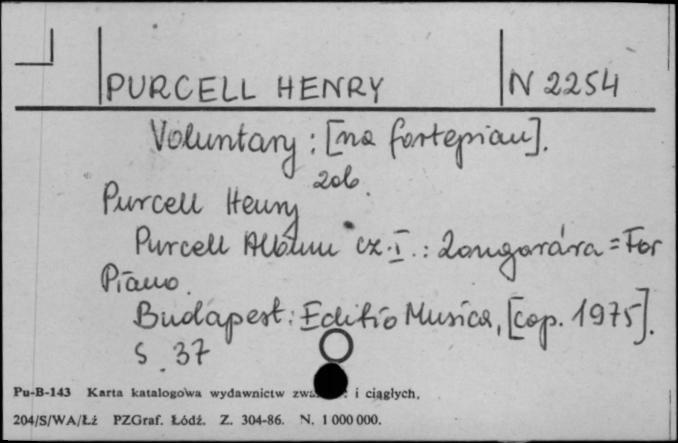 PURCELL HENRY N 2254
Voluntary : [na fortepian].
zob.
Purcell Henry
Purcell Album cz. I. : Zongorára = For
Piano.
Budapest : Editio Musica, [cop. 1975].
S. 37
Pu-B-143 Karta katalogowa wydawnictw i ciągłych.
204/S/WA/Łź PZGraf. Łódź. Z. 304-86. N. 1 000 000.